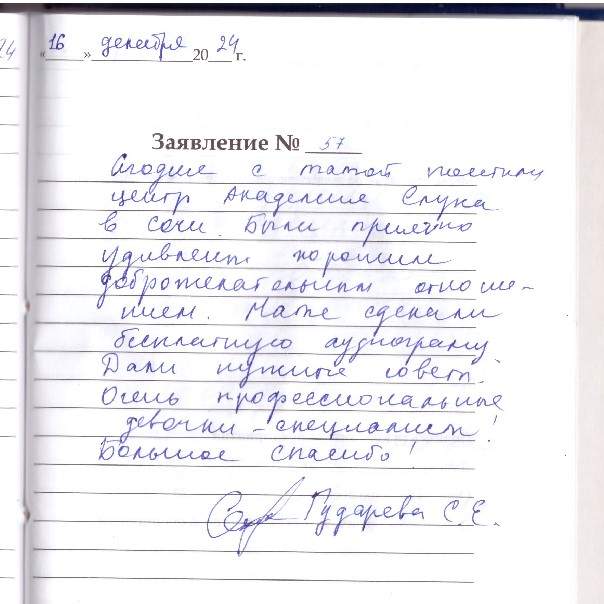 24
«16» декабря 2024 г.
Заявление № 57
Сегодня с мамой посетили
центр Академия Слуха
в Сочи. Были приятно
удивлены хорошим
доброжелательным отноше-
нием. Маме сделали
бесплатную аудиограму
Дали нужные советы.
Очень профессиональные
девочки-специалисты!
Большое спасибо!
Гударева С.Е.